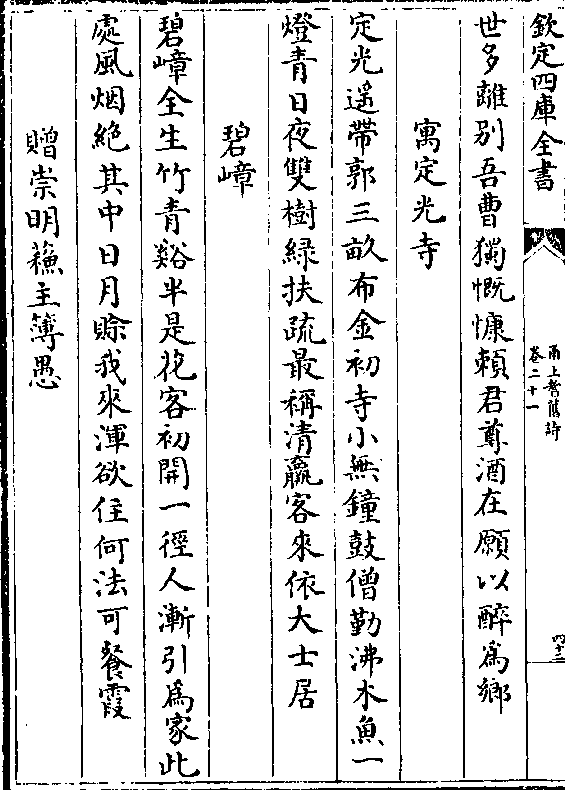 欽定四庫全書
甬上耆舊詩
卷二十一
四十二
世多離别吾曹獨慨慷賴君尊酒在願以醉為鄉
寓定光寺
定光遥帶郭三畝布金初寺小無鐘鼓僧勤沸木魚一
燈青日夜雙樹緑扶疏最稱清羸客來依大士居
碧嶂
碧嶂全生竹青谿半是花客初開一徑人漸引為家此
處風烟絶其中日月賖我來渾欲住何法可餐霞
贈崇明蘓主簿愚